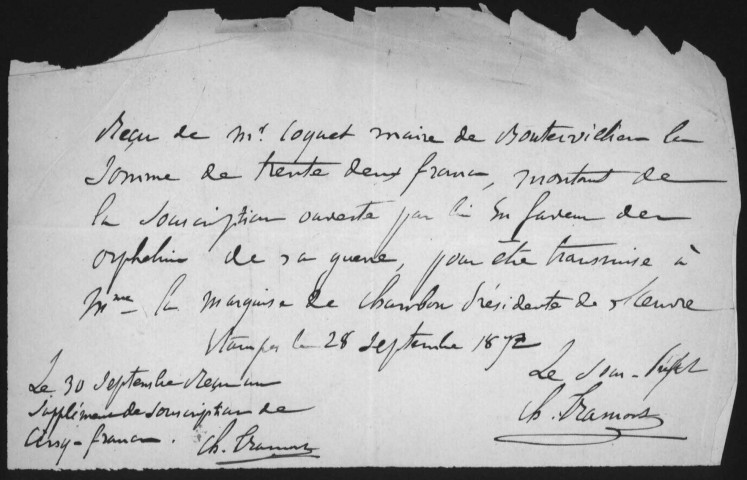 Reçu de Mr Coquet maire de Boutervilliers la
somme de trente deux francs, montant de
la souscription ouverte par lui en faveur des
orphelins de la guerre, pour être transmise à
Mme la marquise de Chambon Présidente de l'Œuvre
Etampes le 28 septembre 1872
Le Sous-Préfet
Le 30 septembre Reçu un
supplément de souscription de
cinq francs.